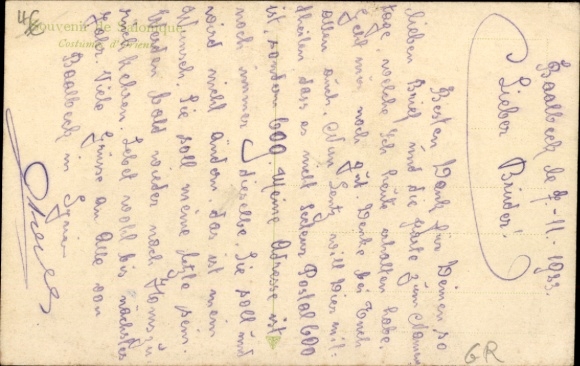 4/6
Souvenir de Salonique
Costumes d'Orient
Baalbeck le 7-11-1933.
Lieber Bruder!
Besten Dank für Deinen so
lieben Brief und die Karte zum
tage, welche ich heute erhalten habe.
Geht mir noch gut. Denke bei Euch
allen auch. Nun will hier mit-
theilen dass es nicht Secteur Postal 600
ist, sondern 600. Meine Adresse ist
noch immer dieselbe. Sie soll und
wird nicht ändern, das ist mein
Wunsch. Sie soll meine letzte sein.
Werden bald wieder nach zu
rück kehren. Lebet wohl bis nächstes
Jahr. Viele Grüsse an Alle von
Baalbeck in Syrien
GR